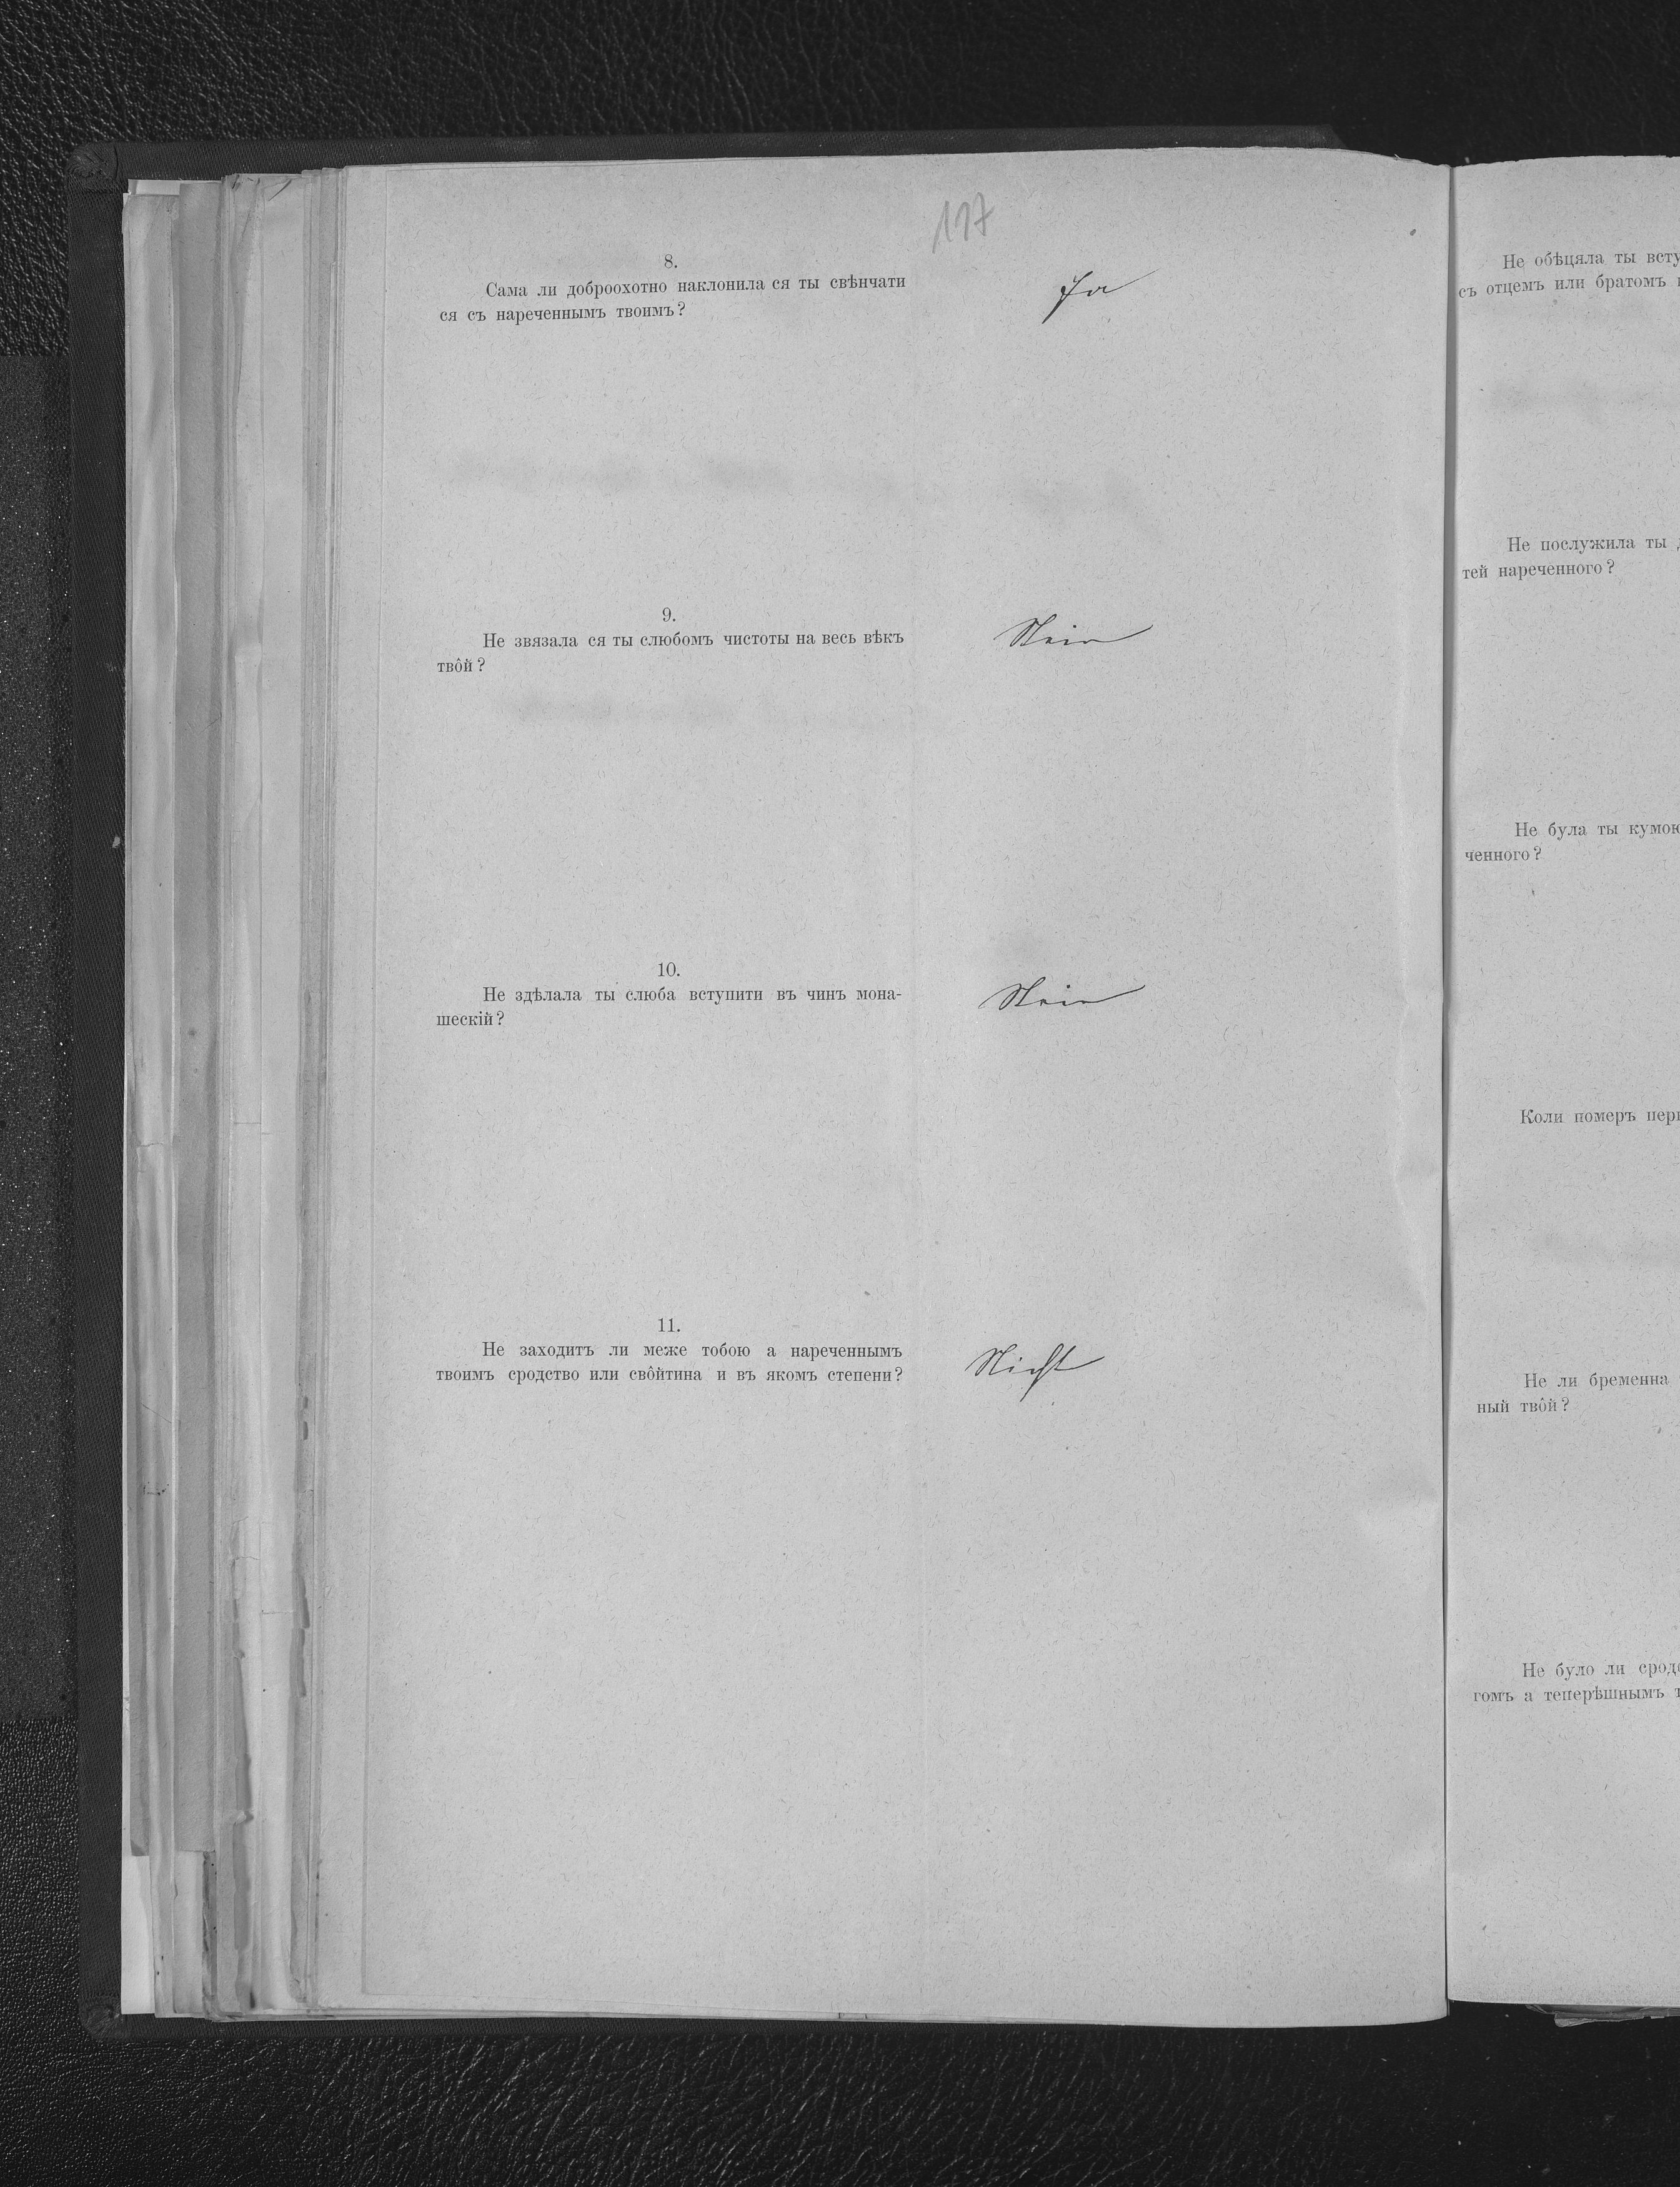 117
8.
Сама ли доброохотно наклонила ся ты свѣнчати
ся съ нареченнымъ твоимъ?
Ja
9.
Не звязала ся ты слюбомъ чистоты на весь вѣкъ
твôй?
Nein
10.
Не здѣлала ты слюба вступити въ чинъ мона-
шескій?
Nein
11.
Не заходитъ ли меже тобою а нареченнымъ
твоимъ сродство или свôйтина и въ якомъ степени?
Nicht
Не обѣцяла ты всту
съ отцемъ или братомъ
Не послужила ты
тей нареченного?
Не була ты кумою
ченного?
Коли померъ пер
Не ли бременна
ный твôй?
Не було ли срод
гомъ а теперѣшнымъ